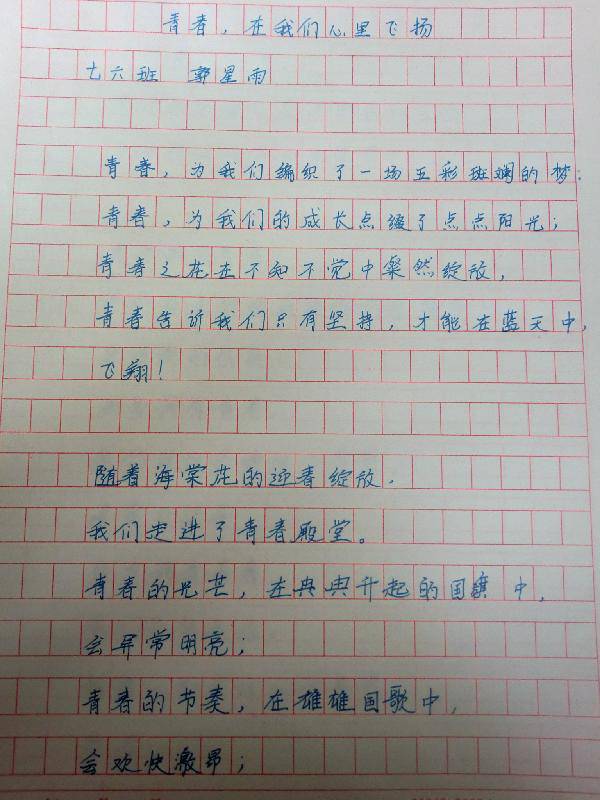 青春，在我们心里飞扬
七六班 郭星雨
青春，为我们编织了一场五彩斑斓的梦；
青春，为我们的成长点缀了点点阳光；
青春之花在不知不觉中粲然绽放，
青春告诉我们只有坚持，才能在蓝天中，
飞翔！
随着海棠花的迎春绽放，
我们走进了青春殿堂。
青春的光芒，在冉冉升起的国旗中，
会异常明亮；
青春的节奏，在雄雄国歌中，
会欢快激昂；